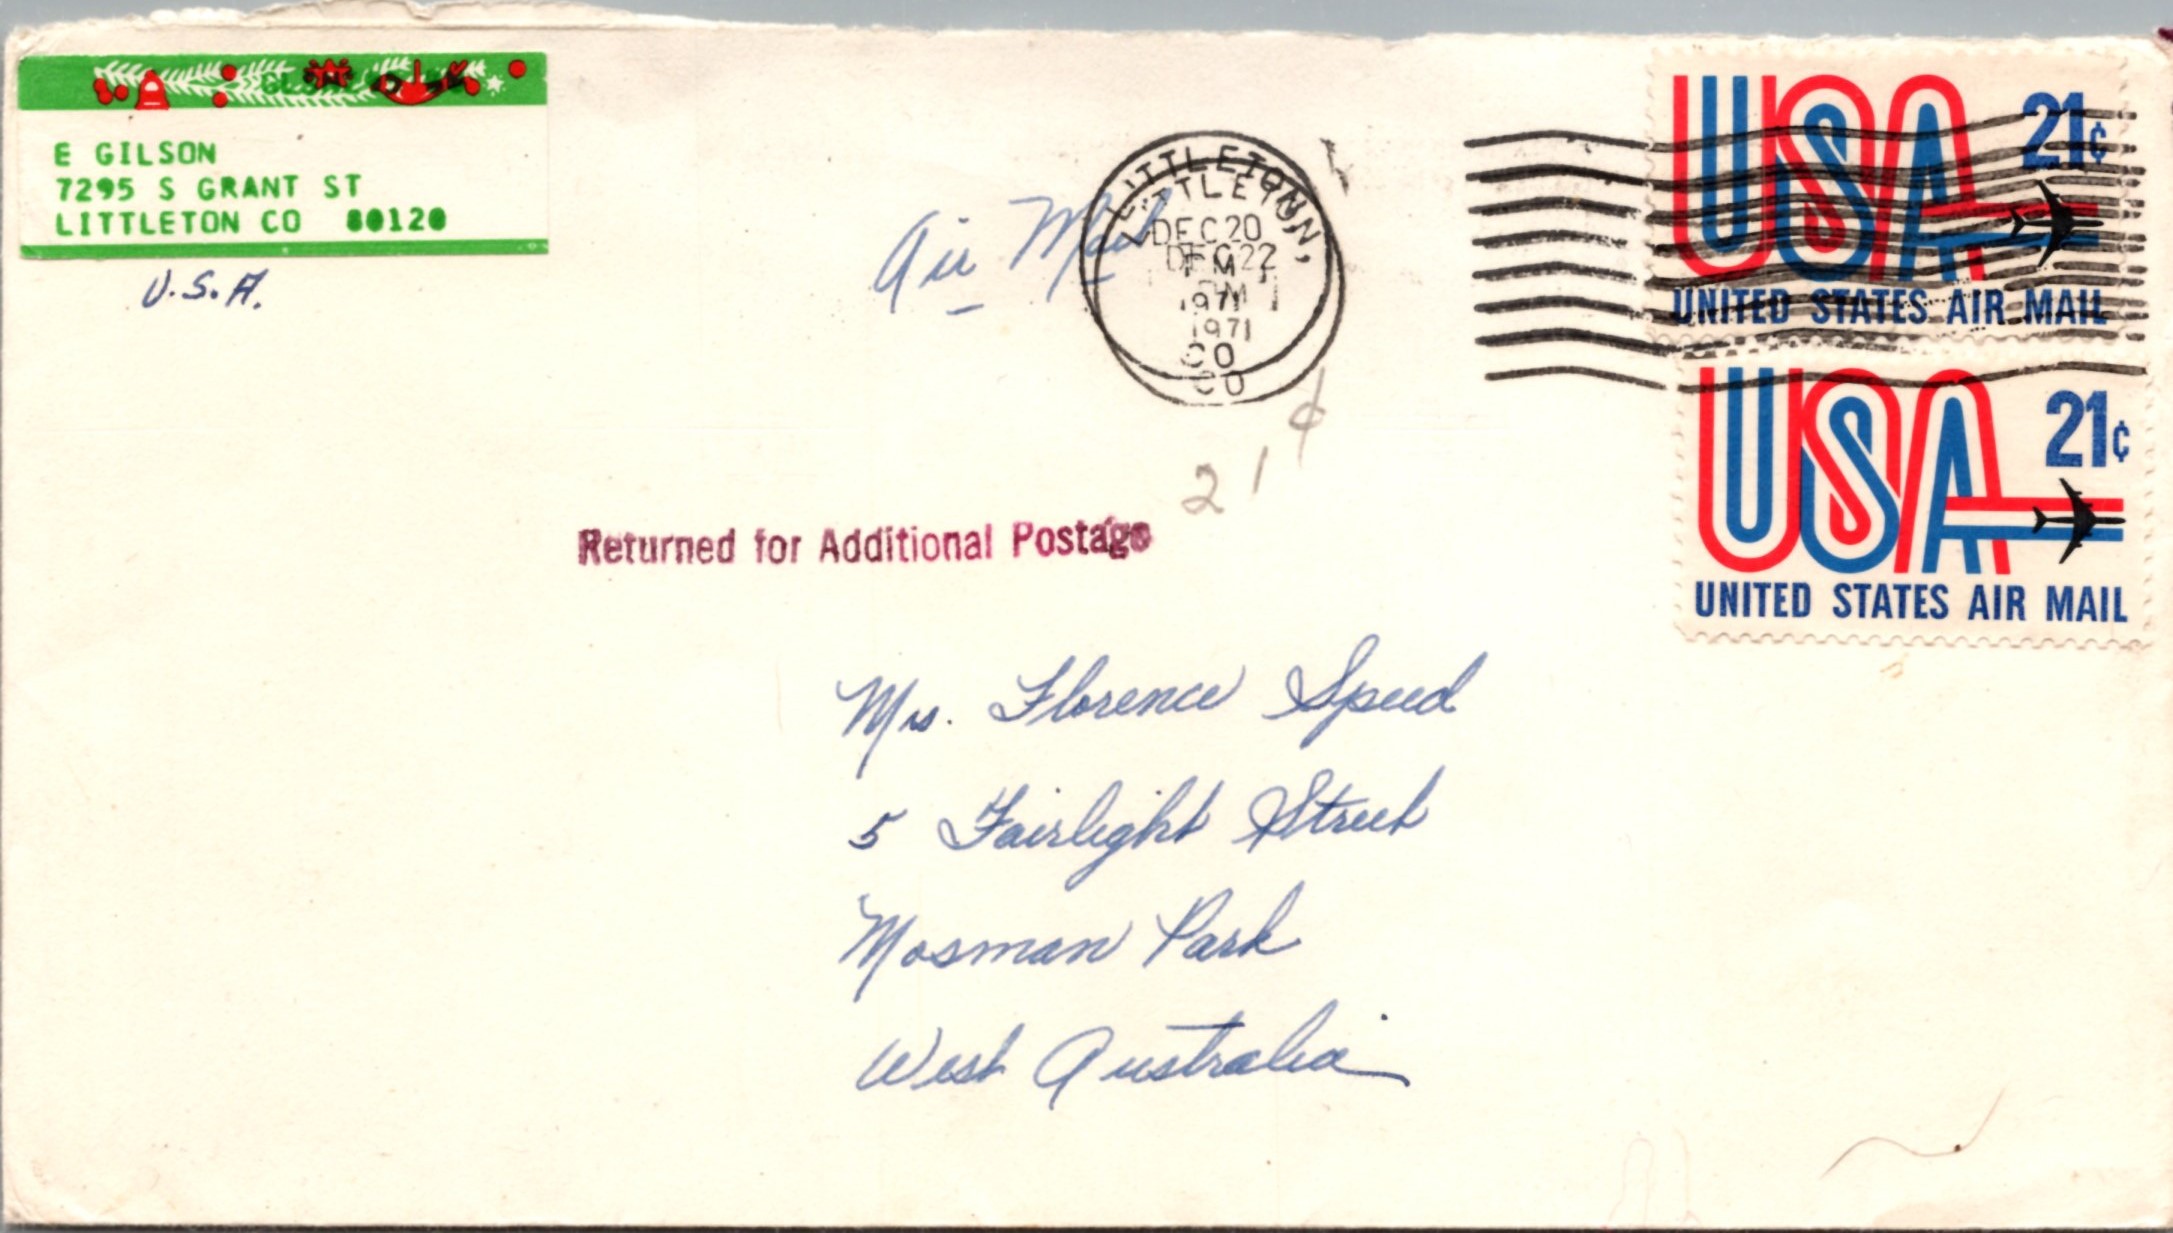 E GILSON
7295 S GRANT ST
LITTLETON CO 80120
U.S.A.
Air Mail
LITTLETON,
LITTLETON,
DEC 20
DEC 22
PM
PM
1971
1971
CO
CO
USA 21¢
UNITED STATES AIR MAIL
USA 21¢
UNITED STATES AIR MAIL
21¢
Returned for Additional Postage
Mrs. Florence Speed
5 Fairlight Street
Mosman Park
West Australia